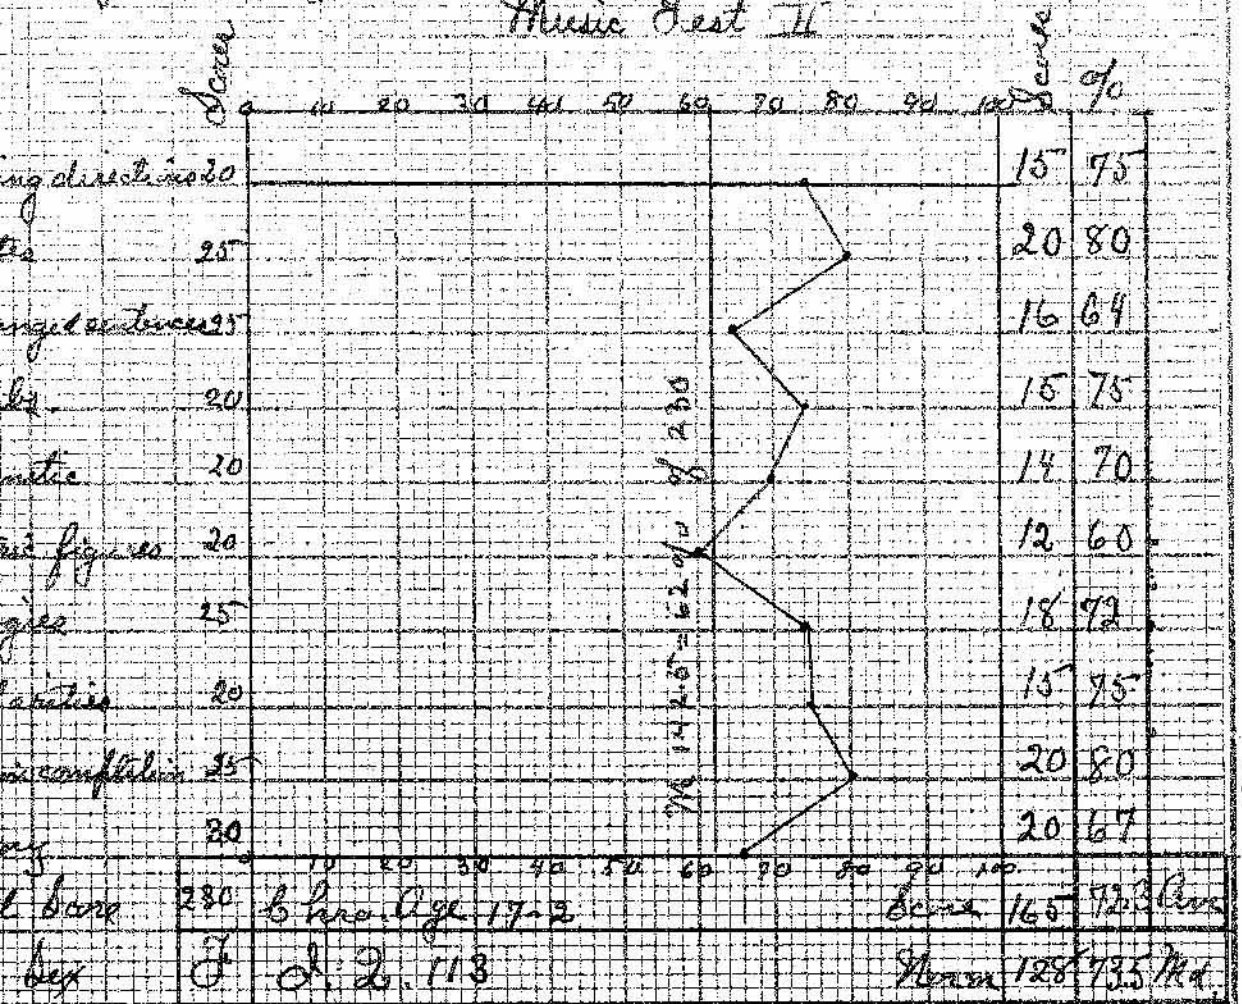 Music Test II
Scores 0 10 20 30 40 50 60 70 80 90 100 Scores %
ing directions 20 15 75
tes 25 20 80
anged sentences 25 16 64
by 20 15 75
metic 20 14 70
figures 20 12 60
gies 25 18 72
larities 20 15 75
completion 25 20 80
30 20 67
M 142.5 = 62% of 230
0 10 20 30 40 50 60 70 80 90 100
l Score 230 Chro. Age 17-2 Score 165 72.3 Av.
Sex F I.Q. 118 Norm 128 73.5 Md.